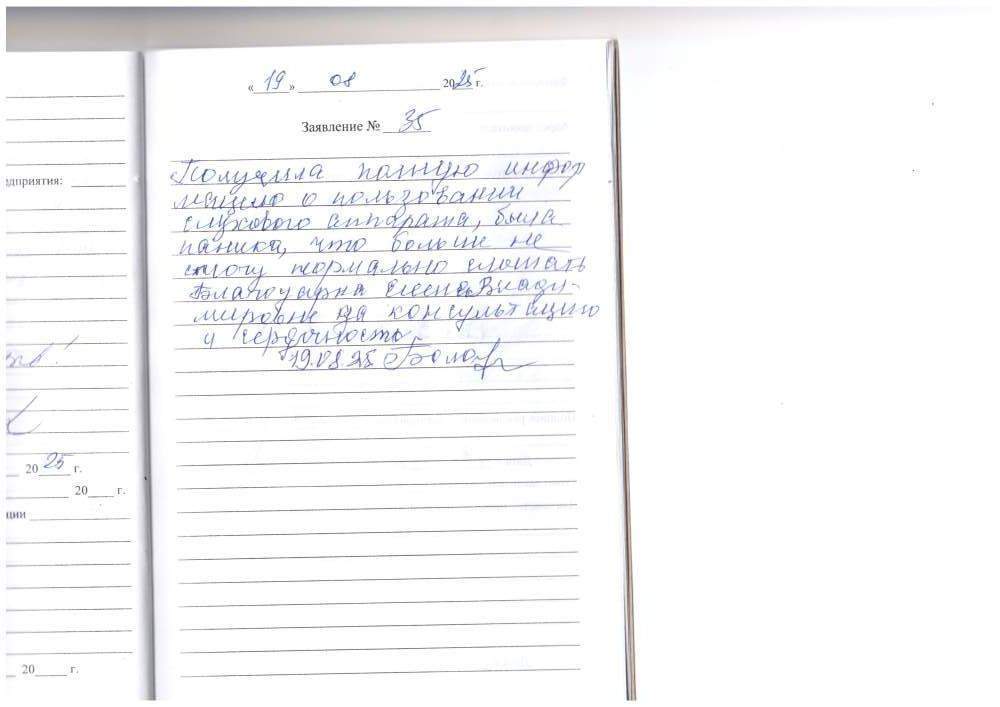 «19» 08 2025 г.
Заявление № 35
Получила полную инфор
мацию о пользовании
слухового аппарата, была
паника, что больше не
смогу нормально слышать
Благодарна Елене Влади-
мировне за консультацию
и сердечность
19.08.25
едприятия:
20 25 г.
20 г.
ции
20 г.